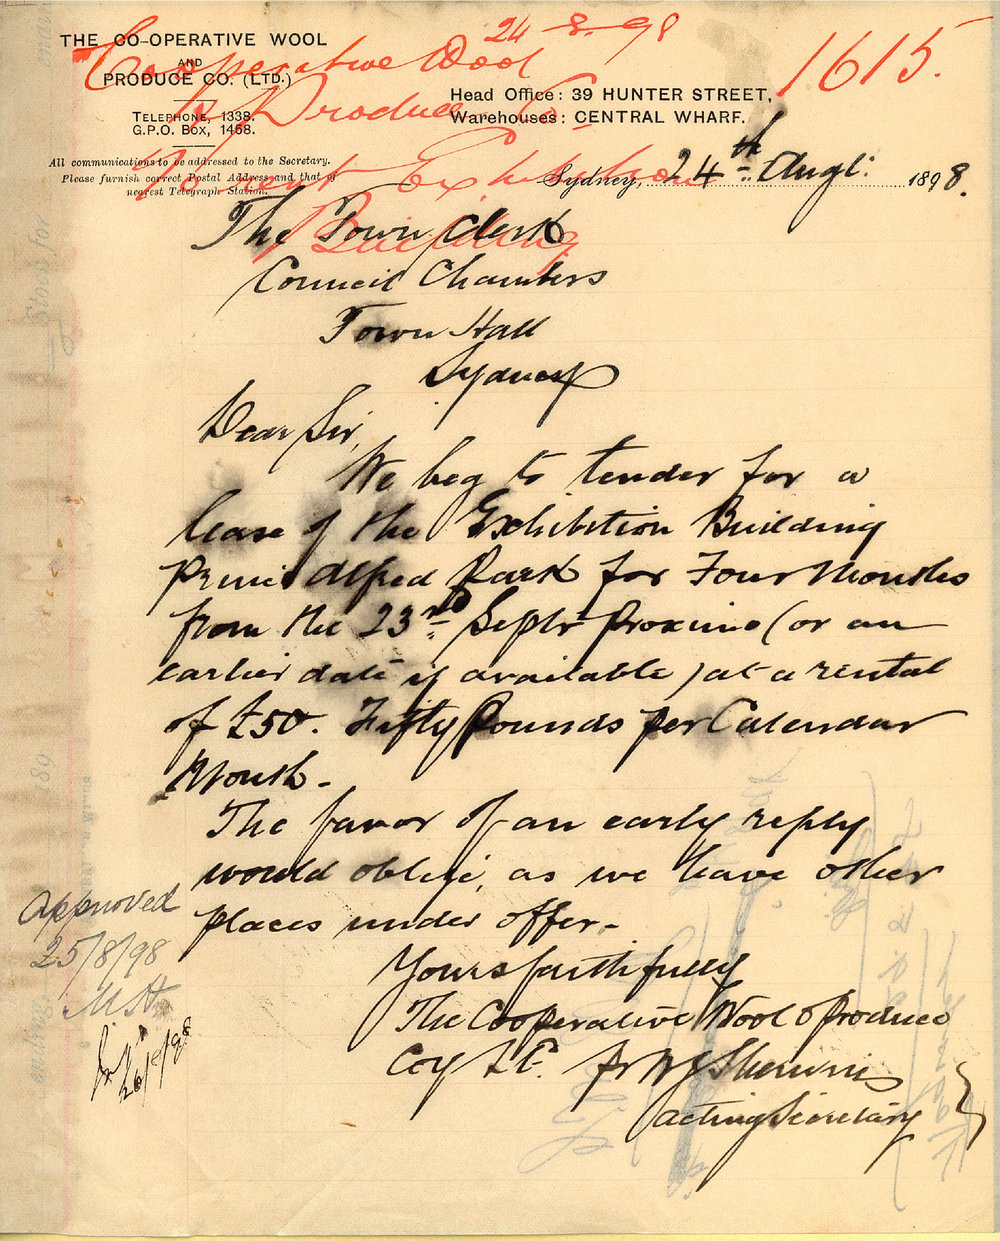 24-8-98
1615.
Cooperative Wool
& Produce Co.
Re rent Exhibition
Building
THE CO-OPERATIVE WOOL
AND
PRODUCE CO. (LTD.)
TELEPHONE, 1338.
G.P.O. BOX, 1468.
Head Office: 39 HUNTER STREET,
Warehouses: CENTRAL WHARF.
All communications to be addressed to the Secretary.
Please furnish correct Postal Address and that of
nearest Telegraph Station.
Sydney, 24th Augt. 1898.
The Town Clerk
Council Chambers
Town Hall
Sydney
Dear Sir,
We beg to tender for a
lease of the Exhibition Building
Prince Alfred Park for Four Months
from the 23rd Septr Proximo (or an
earlier date if available) at a rental
of £50. Fifty Pounds per Calendar
Month -
The favor of an early reply
would oblige, as we have other
places under offer -
Yours faithfully
The Cooperative Wool & Produce
Coy Ld. pr
Acting Secretary
Approved
25/8/98
26/8/98